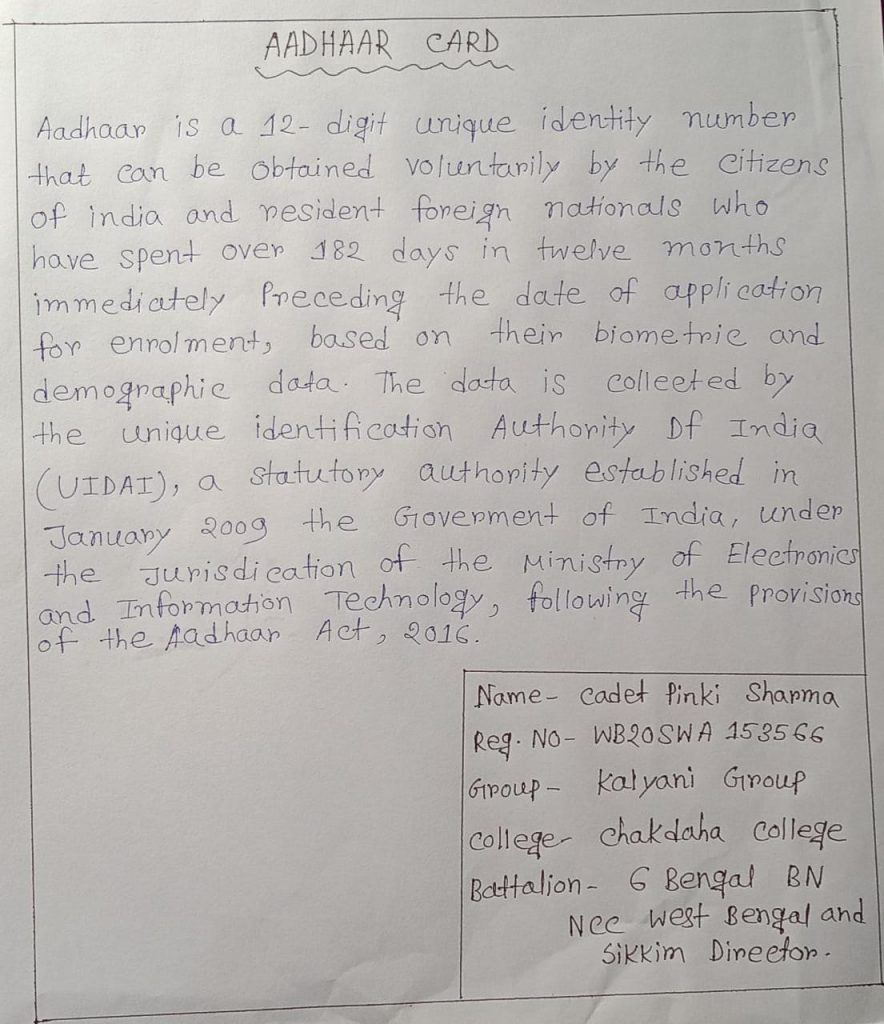 AADHAAR CARD
Aadhaar is a 12- digit unique identity number
that can be obtained voluntarily by the citizens
of india and resident foreign nationals who
have spent over 182 days in twelve months
immediately Preceding the date of application
for enrolment, based on their biometric and
demographic data. The data is collected by
the unique identification Authority Of India
(UIDAI), a statutory authority established in
January 2009 the Goverment of India, under
the Jurisdication of the Ministry of Electronics
and Information Technology, following the provisions
of the Aadhaar Act, 2016.
Name- Cadet Pinki Sharma
Reg. No- WB20SWA 153566
Group- Kalyani Group
College- Chakdaha College
Battalion- 6 Bengal BN
NCC West Bengal and
Sikkim Director.